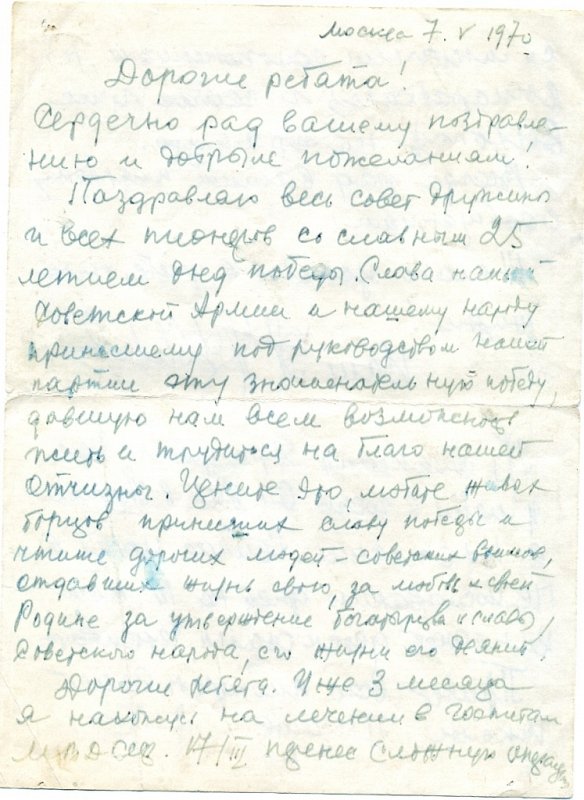 Москва 7. V 1970
Дорогие ребята!
Сердечно рад вашему поздравле-
нию и добрым пожеланиям!
Паздравляю весь совет дружины
и всех пионеров со славным 25
летием дня победы. Слава нашей
Советской Армии и нашему народу
принесшему под руководством нашей
партии эту знаменательную победу,
давшую нам всем возможность
жить и трудиться на благо нашей
Отчизны. Цените это, любите живых
борцов принесших славу победы и
чтите дорогих людей - советских воинов,
отдавших жизнь свою, за любовь к своей
Родине за утверждение богатырства и славы,
Советского народа, его жизни его деяний.
Дорогие ребята. Уже 3 месяца
я нахожусь на лечении в госпитале
17/III перенес сложную операцию